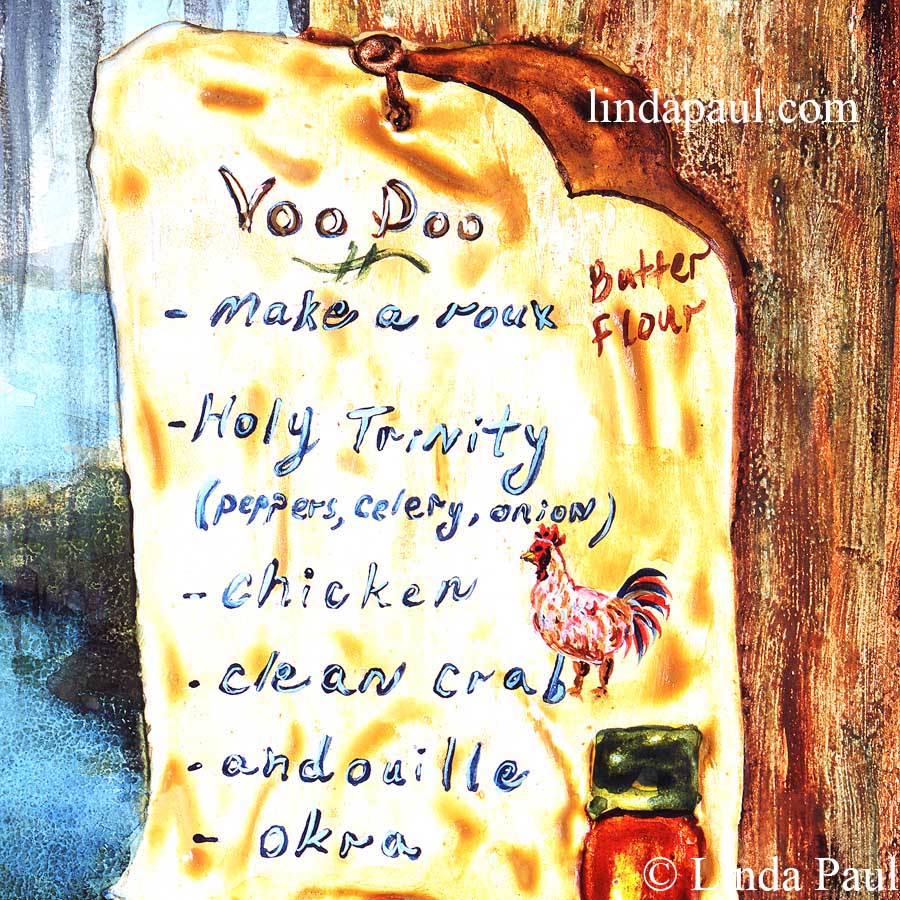 lindapaul.com
Voo Doo
- Make a roux
Butter
Flour
- Holy Trinity
(peppers, celery, onion)
- chicken
- clean crab
- andouille
- okra
© Linda Paul